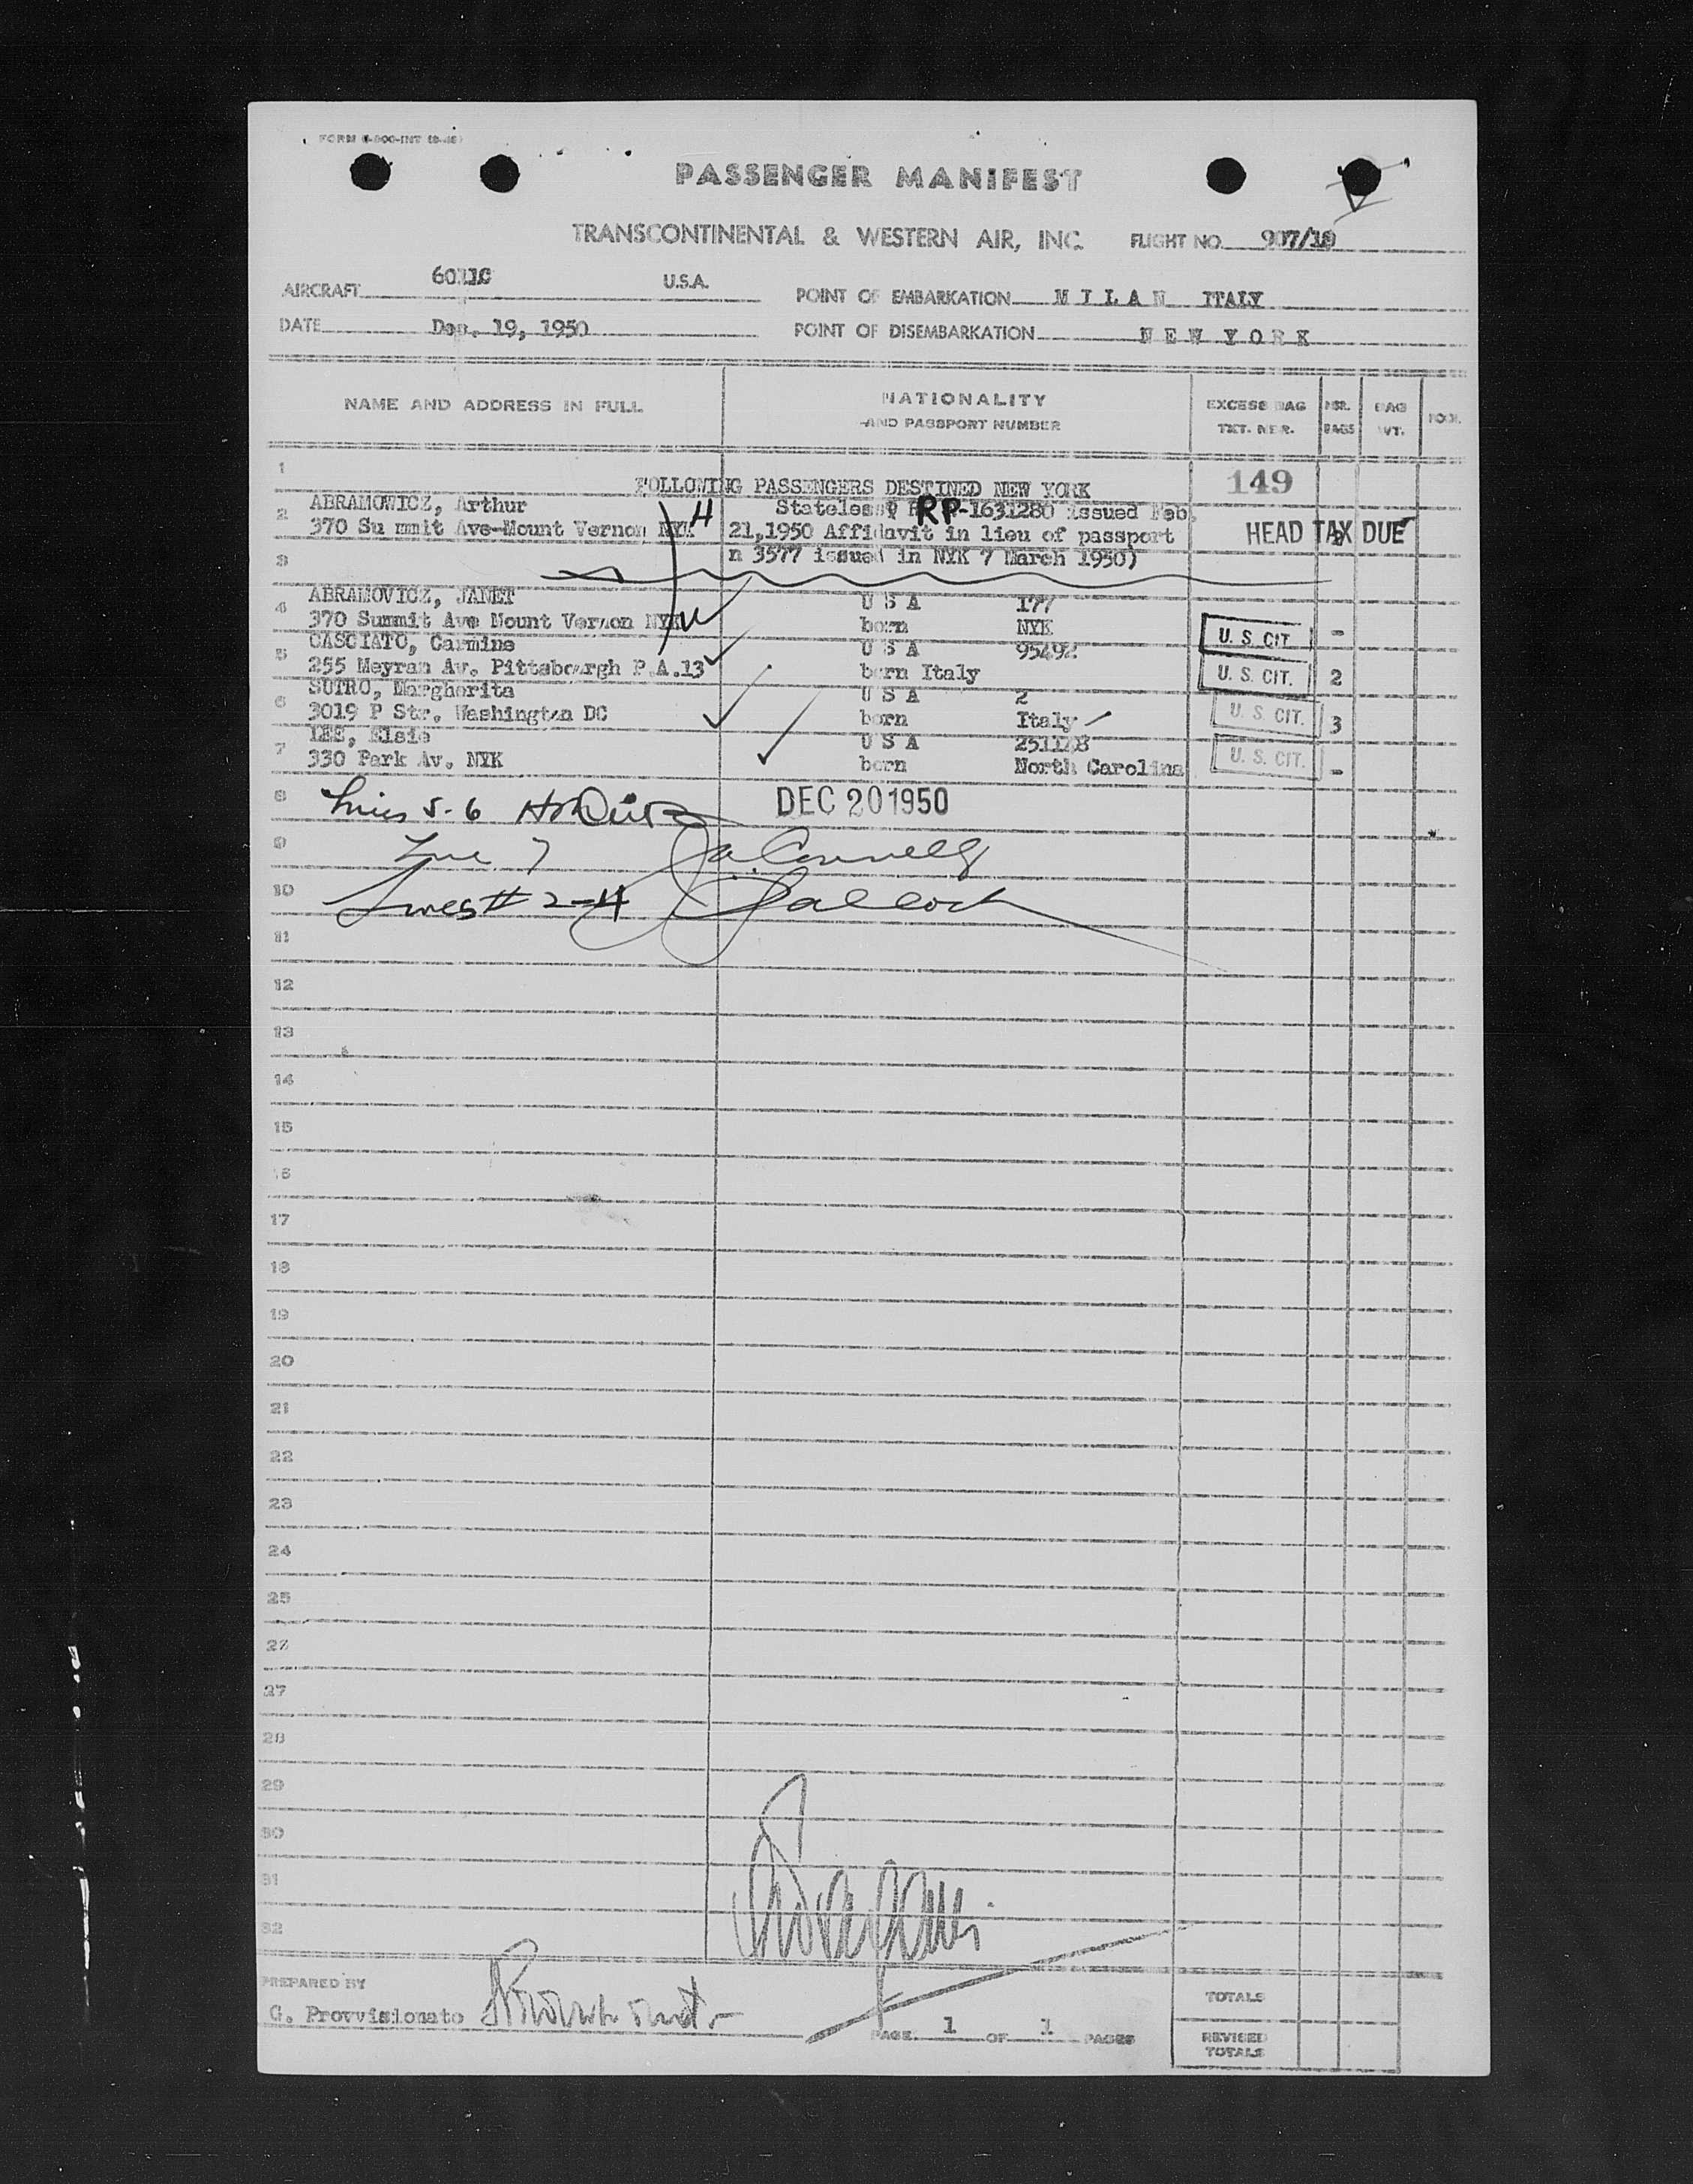 PASSENGER MANIFEST
TRANSCONTINENTAL & WESTERN AIR, INC. FLIGHT NO. 907/18
AIRCRAFT 6011C U.S.A. POINT OF EMBARKATION M I L A N ITALY
DATE Dec. 19, 1950 POINT OF DISEMBARKATION N E W Y O R K
NAME AND ADDRESS IN FULL NATIONALITY AND PASSPORT NUMBER EXCESS BAG TKT. NBR. NBR. BAGS BAG WT.
1 FOLLOWING PASSENGERS DESTINED NEW YORK 149
ABRAMOWICZ, Arthur Stateless RP-1631280 issued Feb.
2 370 Su mmit Ave-Mount Vernon NYK 21,1950 Affidavit in lieu of passport HEAD TAX DUE
3 n 3577 issued in NYK 7 March 1950)
ABRAMOVICZ, JANET U S A 177
4 370 Summit Ave Mount Vernon NYK born NYK U. S. CIT. -
CASCIATO, Carmine U S A 95492
5 255 Meyran Av. Pittsbourgh P.A.13 born Italy U. S. CIT. 2
SUTRO, Margherita U S A 2
6 3019 P Str. Washington DC born Italy U. S. CIT. 3
LEE, Elsie U S A 251128
7 330 Park Av. NYK born North Carolina U. S. CIT. -
8 Lines 5-6 DEC 20 1950
9 Line 7
10 Lines # 2-4
11
12
13
14
15
16
17
18
19
20
21
22
23
24
25
27
28
29
30
31
32
PREPARED BY
G. Provvisionato
PAGE 1 OF 1 PAGES
TOTALS
REVISED TOTALS